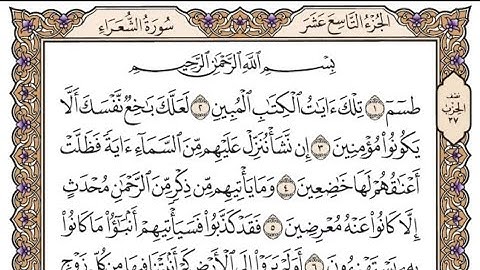 الجزء التاسع عشر
سورة الشعراء
بِسْمِ ٱللَّهِ ٱلرَّحْمَٰنِ ٱلرَّحِيمِ
نصف
الحزب
٣٧
طسٓمٓ ١ تِلْكَ ءَايَٰتُ ٱلْكِتَٰبِ ٱلْمُبِينِ ٢ لَعَلَّكَ بَٰخِعٌ نَّفْسَكَ أَلَّا
يَكُونُوا۟ مُؤْمِنِينَ ٣ إِن نَّشَأْ نُنَزِّلْ عَلَيْهِم مِّنَ ٱلسَّمَآءِ ءَايَةً فَظَلَّتْ
أَعْنَٰقُهُمْ لَهَا خَٰضِعِينَ ٤ وَمَا يَأْتِيهِم مِّن ذِكْرٍ مِّنَ ٱلرَّحْمَٰنِ مُحْدَثٍ
إِلَّا كَانُوا۟ عَنْهُ مُعْرِضِينَ ٥ فَقَدْ كَذَّبُوا۟ فَسَيَأْتِيهِمْ أَنۢبَٰٓؤُا۟ مَا كَانُوا۟
بِهِۦ يَسْتَهْزِءُونَ ٦ أَوَلَمْ يَرَوْا۟ إِلَى ٱلْأَرْضِ كَمْ أَنۢبَتْنَا فِيهَا مِن كُلِّ زَوْجٍ